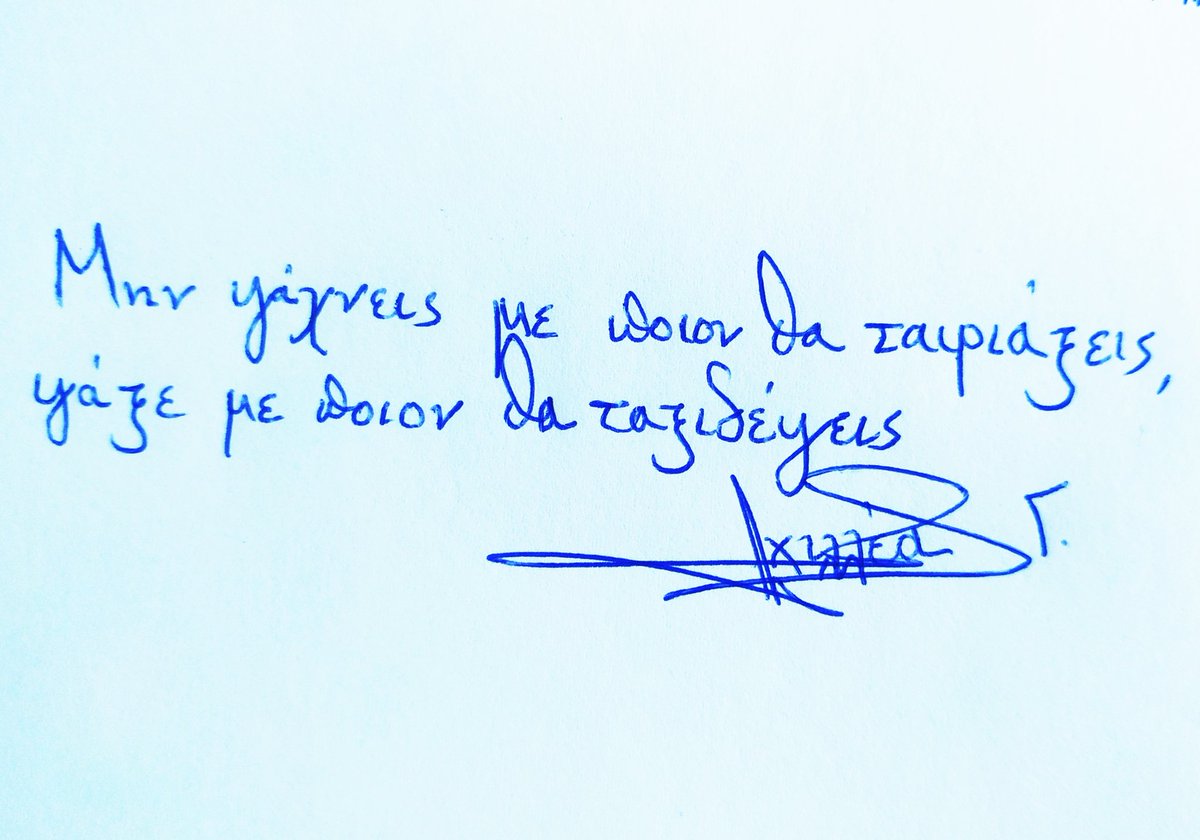 Μην ψάχνεις με ποιον θα ταιριάξεις,
ψάξε με ποιον θα ταξιδέψεις
Αχιλλέα Γ.